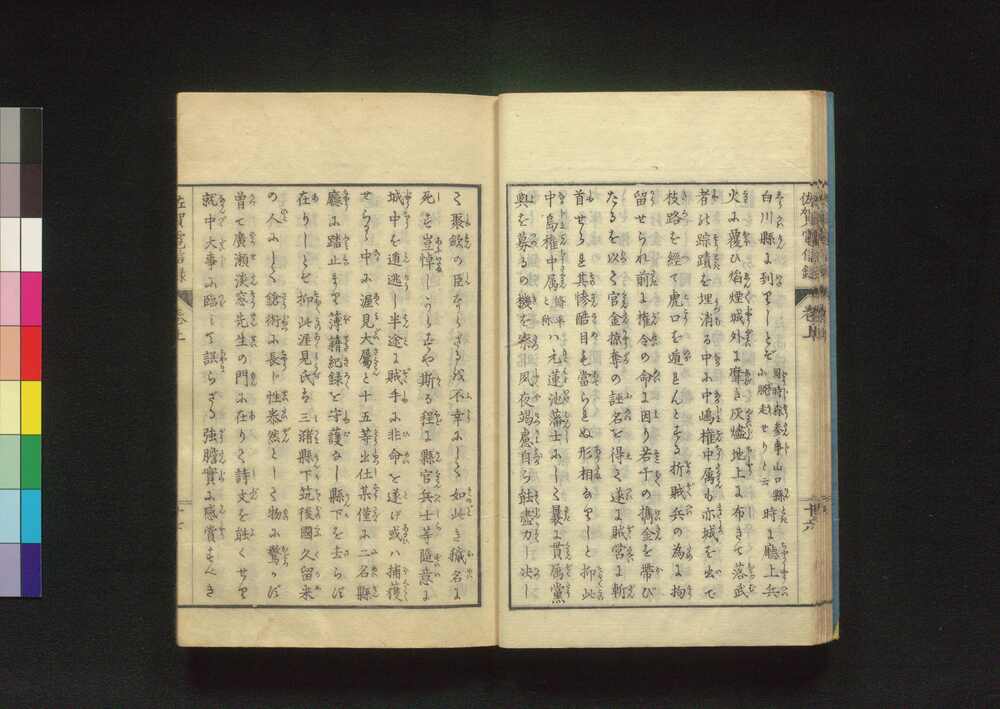 佐賀電信録 巻上
白川縣に到りしとぞ 同時森参事山口縣に脱走せりと云 時に廳上兵
火に覆ひ焰煙城外に靡き灰燼地上に布きて落武
者の踪蹟を埋消る中に中嶋権中属も亦城を出で
枝路を経て虎口を遁れんとする折賊兵の為に拘
留せられ前に権令の命に因り若干の携金を帯び
たるを以て官金掠奪の証名を得て遂に賊営に斬
首せらる其惨酷目も當られぬ形相なりしと抑此
中島権中属 ハ元蓮池藩士にして曩に貫属黨
與を募るの機を察し夙夜竭慮自ら能盡力一決し
廿六
て聚斂の臣ならざるは不幸にして如此き穢名に
死も豈悼しからむや斯る程に縣官兵士等随意に
城中を遁逃し半途に賊手に非命を遂げ或ハ捕獲
せらる中に渥見大属と十五等出仕某僅に二名縣
廳に踏止まり簿籍紀録を守護なし縣下を去らば
在りしとぞ抑此渥見氏は三潴縣下筑後國久留米
の人にして鎗術に長じ性泰然として物に驚かば
曽て廣瀬淡窓先生の門に在りて詩文を能くせり
就中大事に臨して誤らざる強膽實に感賞すべき
佐賀電信録 巻上